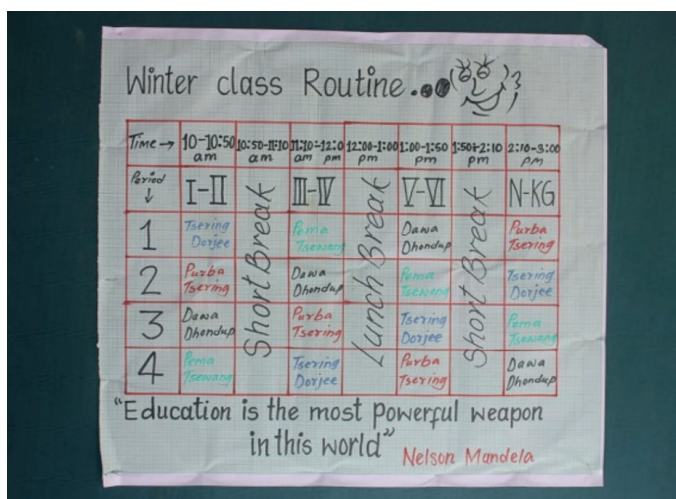 Winter class Routine...
Time → 10-10:50 am 10:50-11:10 am 11:10-12:0 am pm 12:00-1:00 pm 1:00-1:50 pm 1:50-2:10 pm 2:10-3:00 pm
Period ↓ I-II Short Break III-IV Lunch Break V-VI Short Break N-KG
1 Tsering Dorjee Pema Tsewang Dawa Dhondup Purba Tsering
2 Purba Tsering Dawa Dhondup Pema Tsewang Tsering Dorjee
3 Dawa Dhondup Purba Tsering Tsering Dorjee Pema Tsewang
4 Pema Tsewang Tsering Dorjee Purba Tsering Dawa Dhondup
"Education is the most powerful weapon
in this world"
Nelson Mandela